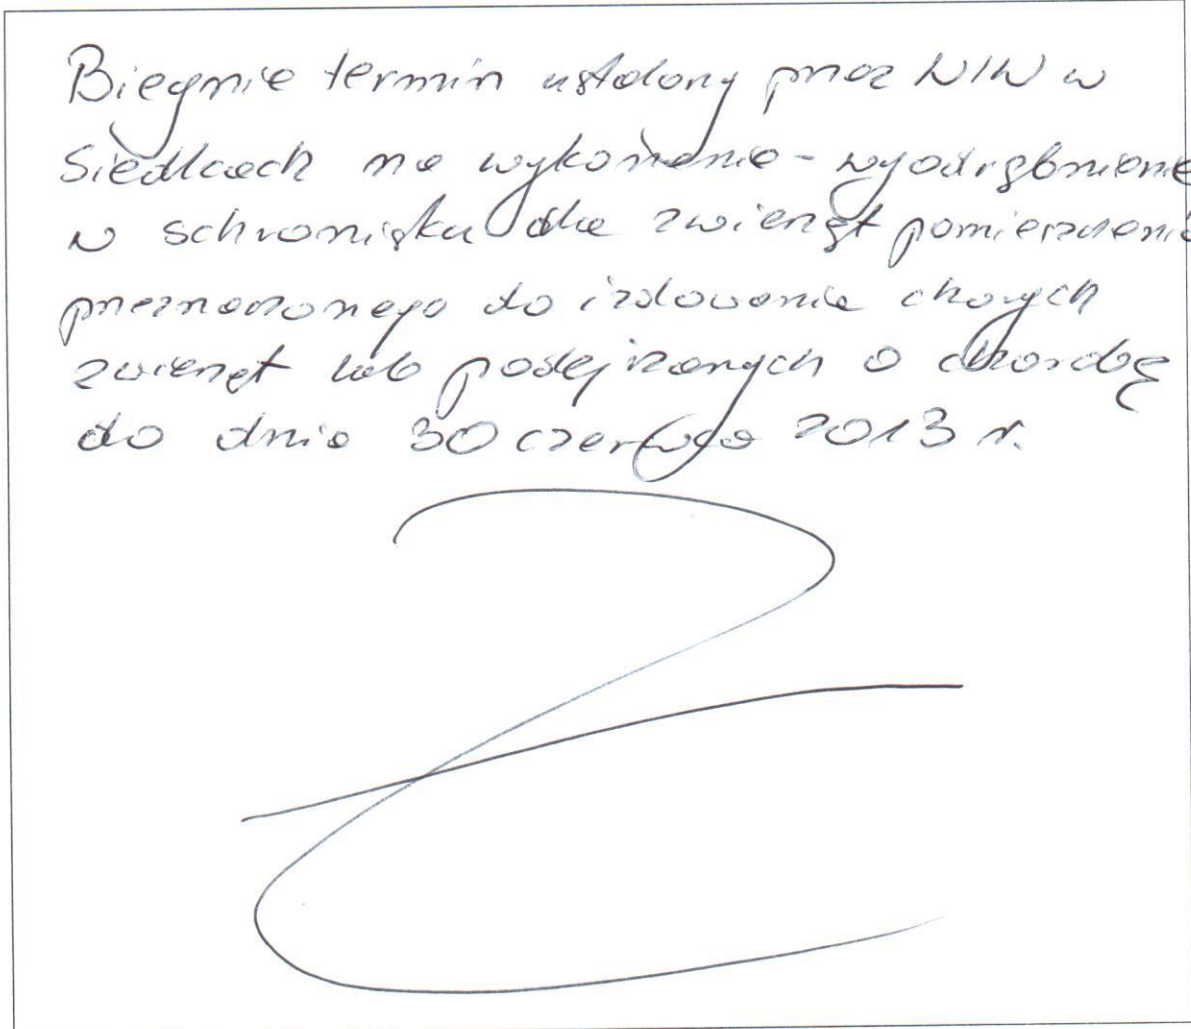 Biegnie termin ustalony przez WIW w
Siedlcach na wykonanie - wyodrębnienie
w schronisku dla zwierząt pomieszczenia
przeznaczonego do izolowania chorych
zwierząt lub podejrzanych o chorobę
do dnia 30 czerwca 2013 r.